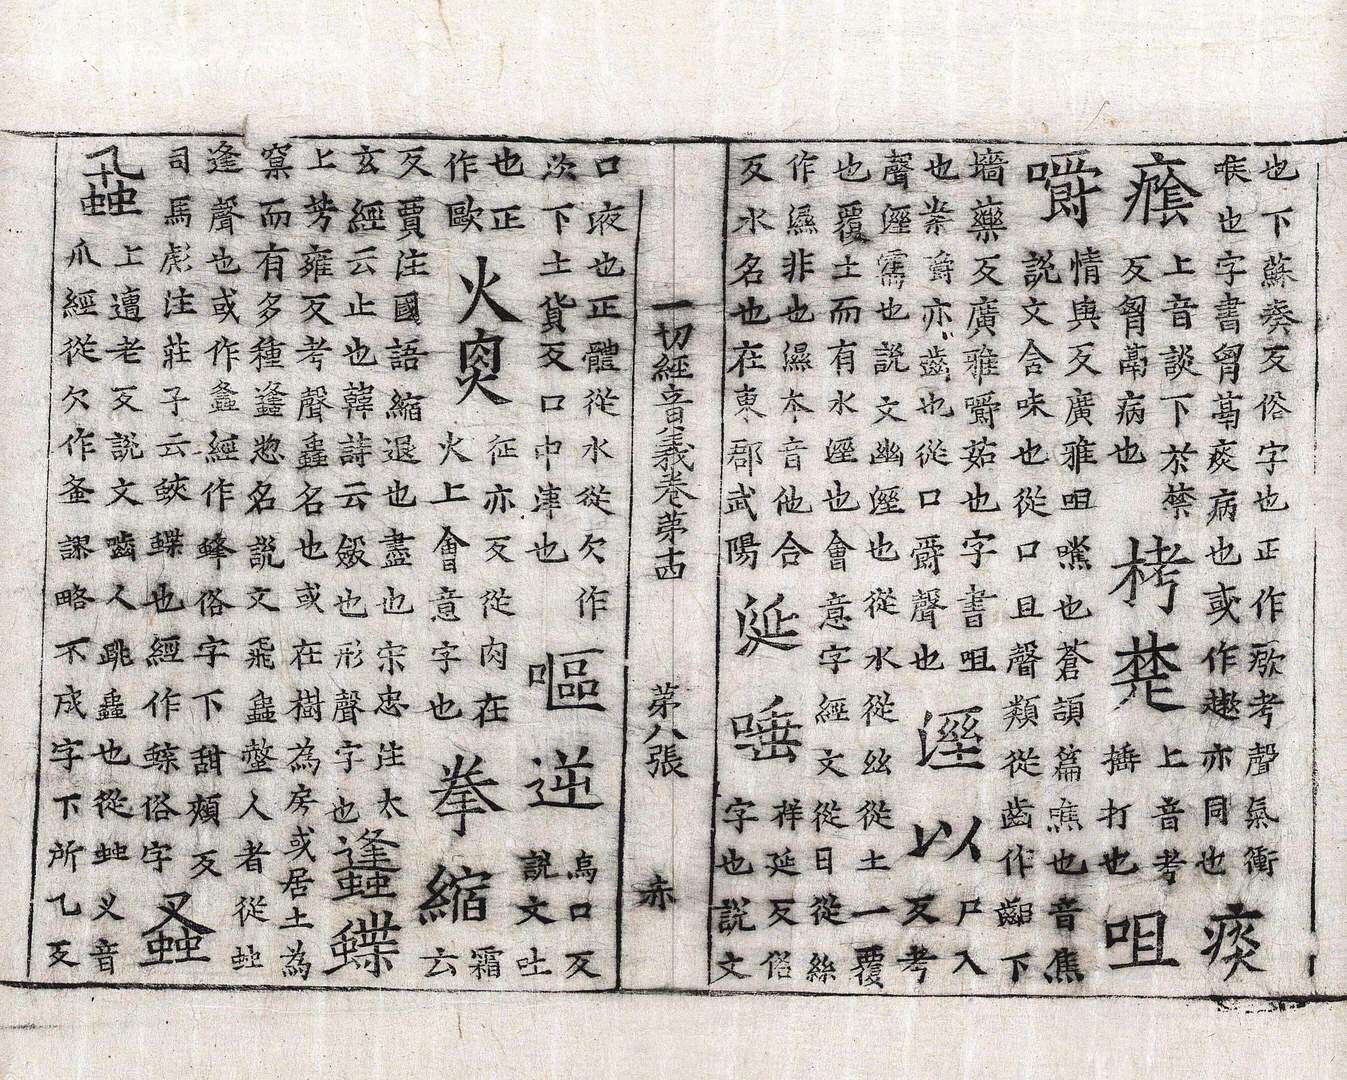 也下蘇奏反俗字也正作瘶考聲氣衝
喉也字書胷萺痰病也或作遬亦同也
痰
癊上音談下於禁反胷萺病也
栲楚上音考下捶打也
咀
嚼情與反廣雅咀噍也蒼頡篇噍也音焦
說文含味也從口且聲類從齒作齟下
墻藥反廣雅嚼茹也字書咀
也㭰嚼亦齒也從口爵聲也
溼以尸入反考
聲溼霑也說文幽溼也從水從絲從土一覆
也覆土而有水溼也會意字經文從日從絲
作濕非也濕本音他合
反水名也在東郡武陽
涎唾祥延反俗字也說文
一切經音義卷第十四 第八張 赤
口液也正體從水從欠作
㳄下土貨反口中津也
嘔逆烏口反說文吐
也正作歐
火㷉征亦反從肉在火上會意字也
拳縮霜云
反賈注國語縮退也盡也宋忠注太
玄經云止也韓詩云斂也形聲字也
蠭蠂上芳雍反考聲蠭名也或在樹為房或居土為
窠而有多種蠭惣名說文飛蟲螫人者從䖵
逢聲也或作螽經作蜂俗字下甜頰反
司馬彪注莊子云蛺蠂也經作蝶俗字
蚤
蝨上遭老反說文嚙人跳蟲也從䖵叉音
爪經從欠作蚤謬略不成字下所乙反